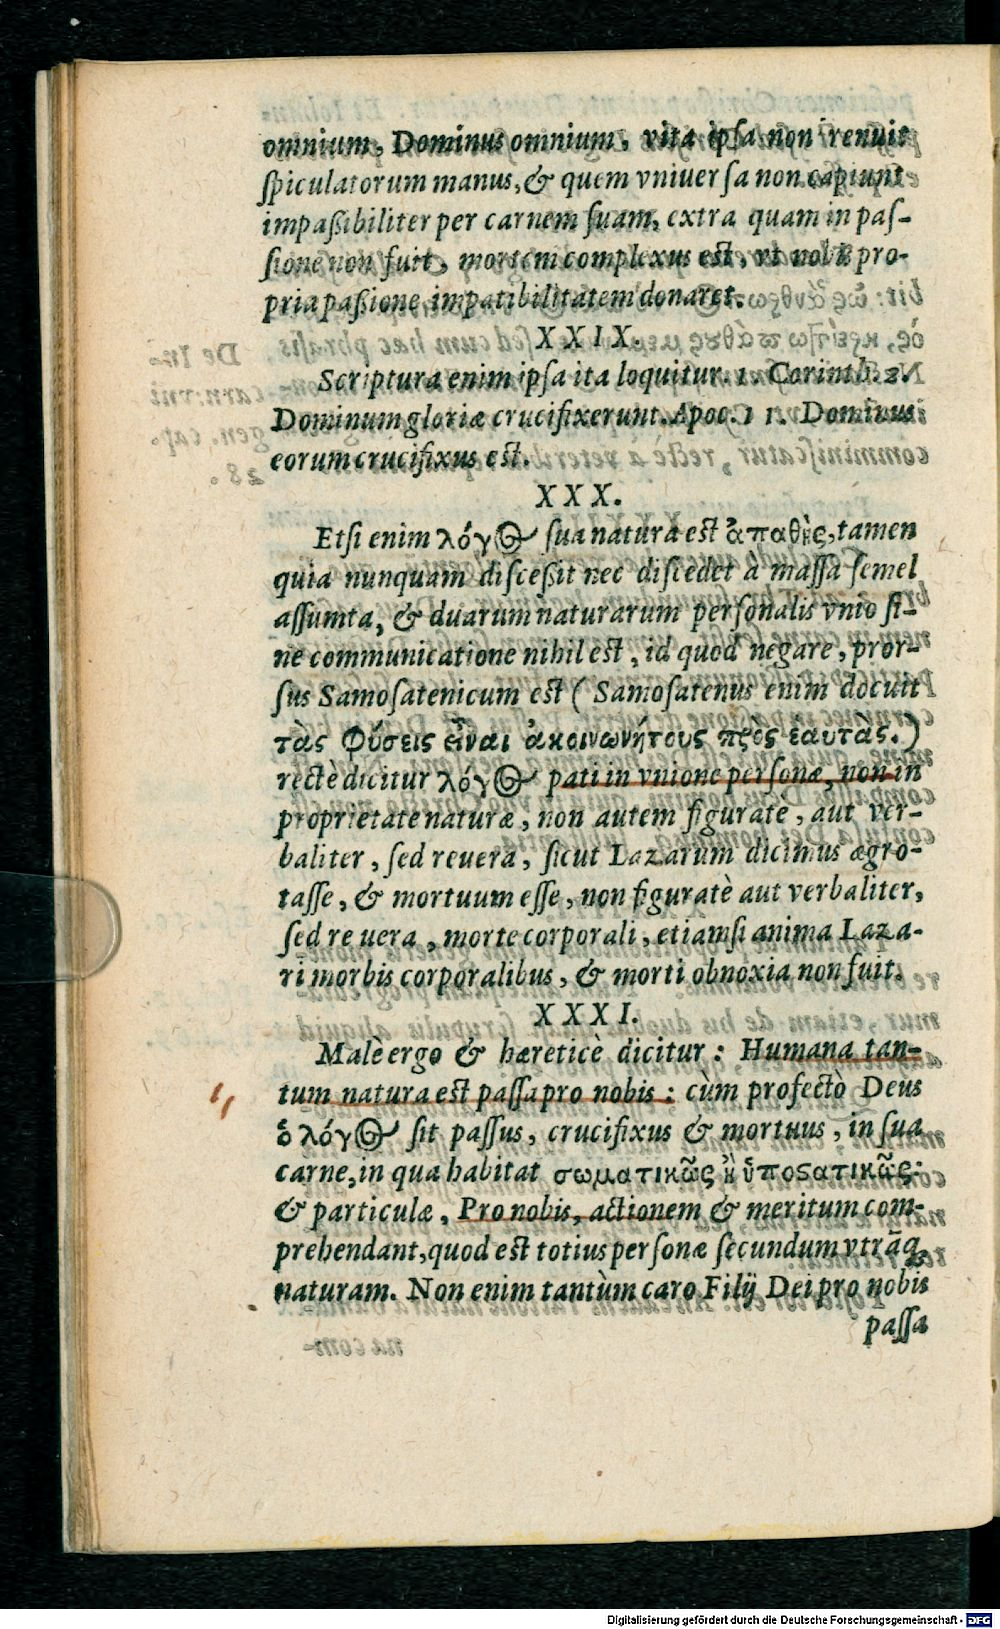 omnium, Dominus omnium, vita ipsa non renuit
spiculatorum manus, & quem vniuersa non capiunt
impaßibiliter per carnem suam, extra quam in pas-
sione non fuit, mortem complexus est, vt nobis pro-
pria paßione impatibilitatem donaret.
XXIX.
Scriptura enim ipsa ita loquitur. 1. Corinth. 2.
Dominum gloriæ crucifixerunt. Apoc. 11. Dominus
eorum crucifixus est.
XXX.
Etsi enim λόγος sua natura est ἀπαθὴς, tamen
quia nunquam disceßit nec discedet à massa semel
assumta, & duarum naturarum personalis vnio si-
ne communicatione nihil est, id quod negare, pror-
sus Samosatenicum est ( Samosatenus enim docuit
τὰς φύσεις εἶναι ἀκοινωνήτους πρὸς ἑαυτάς.)
rectè dicitur λόγος pati in vnione personæ, non in
proprietate naturæ, non autem figuratè, aut ver-
baliter, sed reuera, sicut Lazarum dicimus ægro-
tasse, & mortuum esse, non figuratè aut verbaliter,
sed re uera, morte corporali, etiamsi anima Laza-
ri morbis corporalibus, & morti obnoxia non fuit.
XXXI.
Malè ergo & hæreticè dicitur: Humana tan-
tum natura est passa pro nobis: cùm profectò Deus
ὁ λόγος sit passus, crucifixus & mortuus, in sua
carne, in qua habitat σωματικῶς ἢ ὑποστατικῶς:
& particulæ, Pro nobis, actionem & meritum com-
prehendant, quod est totius personæ secundum vtrāq;
naturam. Non enim tantùm caro Filij Dei pro nobis
passa
Digitalisierung gefördert durch die Deutsche Forschungsgemeinschaft - DFG